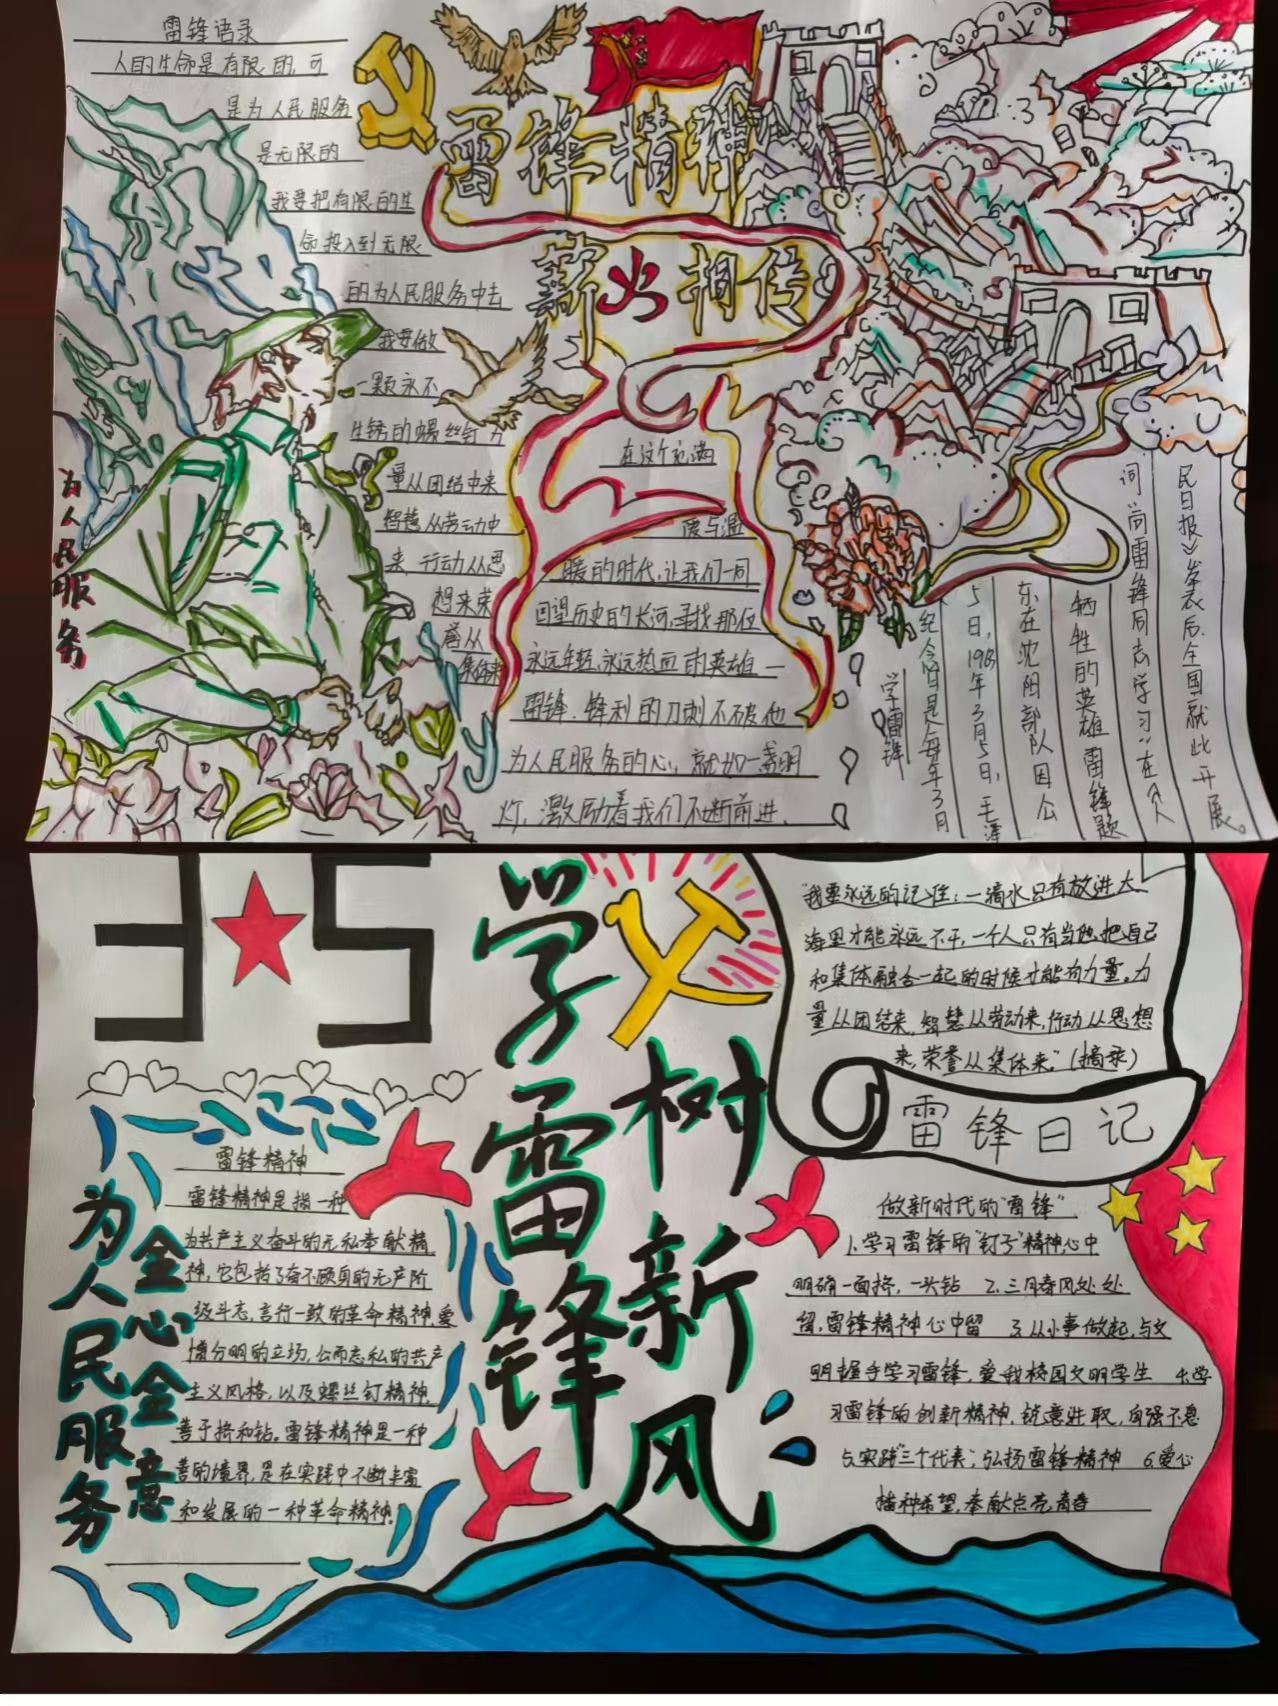 雷锋语录
人的生命是有限的,可
是为人民服务
是无限的
我要把有限的生
命投入到无限
的为人民服务中去
我要做
一颗永不
生锈的螺丝钉力
量从团结中来
智慧从劳动中
来 行动从思
想来荣
誉从
集体来
为人民服务
雷锋精神
薪火相传
在这个充满
度与温
暖的时代,让我们一同
回望历史的长河,寻找那位
永远年轻,永远热血的英雄一
雷锋.锋利的刀刺不破他
为人民服务的心,就如一盏明
灯,激励着我们不断前进.
学雷锋
纪念日是每年3月
5日,1963年3月5日,毛泽
东在沈阳部队因公
牺牲的英雄雷锋题
词“向雷锋同志学习”在《人
民日报》发表后.全国就此开展。
3★5
学雷锋
树新风
“我要永远的记住:一滴水只有放进大
海里才能永远不干,一个人只有当他把自己
和集体融合一起的时候才能有力量。力
量从团结来,智慧从劳动来,行动从思想
来,荣誉从集体来.”(摘录)
雷锋日记
为人民服务
全心全意
雷锋精神
雷锋精神是指一种
为共产主义奋斗的无私奉献精
神,它包括了奋不顾身的无产阶
级斗志,言行一致的革命精神,爱
憎分明的立场,公而忘私的共产
主义风格,以及螺丝钉精神,
善于挤和钻。雷锋精神是一种
善的境界,是在实践中不断丰富
和发展的一种革命精神。
做新时代的“雷锋”
1.学习雷锋的“钉子”精神心中
明确一面挤,一头钻 2.三月春风处处
留,雷锋精神心中留 3.从小事做起,与文
明握手学习雷锋,爱我校园文明学生 4.学
习雷锋的创新精神,锐意进取,自强不息
5.实践“三个代表”;弘扬雷锋精神 6.爱心
播种希望,奉献点亮青春